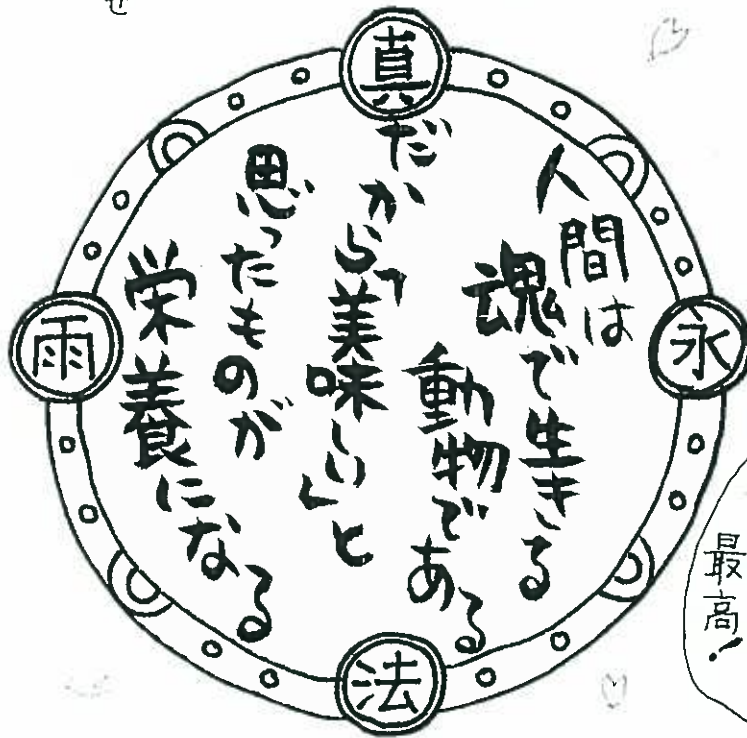 せ
真
人間は
魂で生きる
動物である
だから「美味しい」と
思ったものが
栄養になる
永
雨
法
最高！